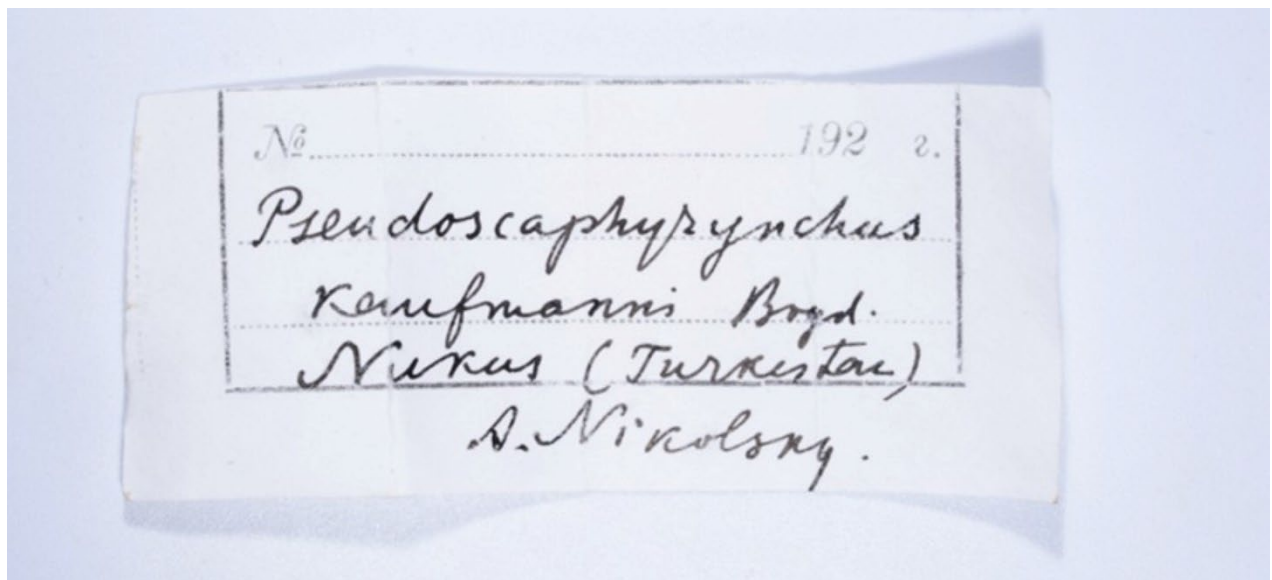 № 192 г.
Pseudoscaphyrynchus
Kaufmanni Bogd.
Nukus (Turkestan)
A. Nikolsky.